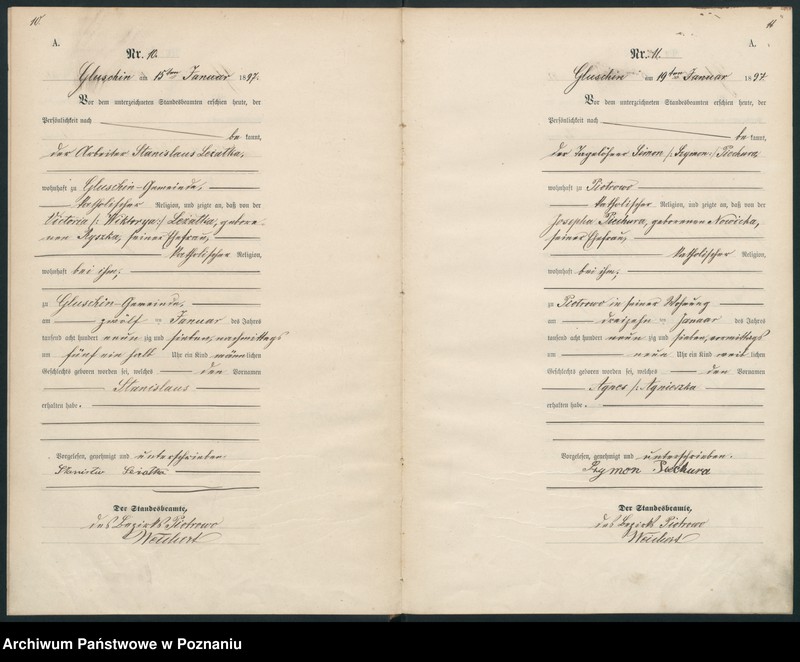 10.
A.
Nr. 10.
Gluschin am 15ten Januar 1897.
Vor dem unterzeichneten Standesbeamten erschien heute, der
Persönlichkeit nach
be kannt,
der Arbeiter Stanislaus Leziatka,
wohnhaft zu Gluschin-Gemeinde,
katholischer Religion, und zeigte an, daß von der
Victoria /: Wiktorya:/ Leziatka, gebore-
nen Ryszka, seiner Ehefrau,
katholischer Religion,
wohnhaft bei ihm,
zu Gluschin-Gemeinde,
am zwölf ten Januar des Jahres
tausend acht hundert neun zig und sieben, nachmittags
um fünf ein halb Uhr ein Kind männ lichen
Geschlechts geboren worden sei, welches den Vornamen
Stanislaus
erhalten habe.
Vorgelesen, genehmigt und unterschrieben.
Der Standesbeamte,
des Bezirks Piotrowo
Weichert
11
A.
Nr. 11.
Gluschin am 19ten Januar 1897.
Vor dem unterzeichneten Standesbeamten erschien heute, der
Persönlichkeit nach
be kannt,
der Tagelöhner Simon /: Szymon:/ Piechura,
wohnhaft zu Piotrowo
katholischer Religion, und zeigte an, daß von der
Josepha Piechura, geborenen Nowicka,
seiner Ehefrau,
katholischer Religion,
wohnhaft bei ihm,
zu Piotrowo in seiner Wohnung
am dreizehn ten Januar des Jahres
tausend acht hundert neun zig und sieben, vormittags
um neun Uhr ein Kind weib lichen
Geschlechts geboren worden sei, welches den Vornamen
Agnes /: Agnieszka
erhalten habe.
Vorgelesen, genehmigt und unterschrieben.
Szymon Piechura
Der Standesbeamte,
des Bezirks Piotrowo
Weichert
Archiwum Państwowe w Poznaniu